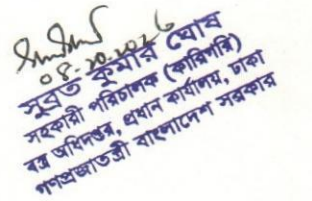 ০৪-১০-২০২৬
সুব্রত কুমার ঘোষ
সহকারী পরিচালক (কারিগরি)
বস্ত্র অধিদপ্তর, প্রধান কার্যালয়, ঢাকা
গণপ্রজাতন্ত্রী বাংলাদেশ সরকার